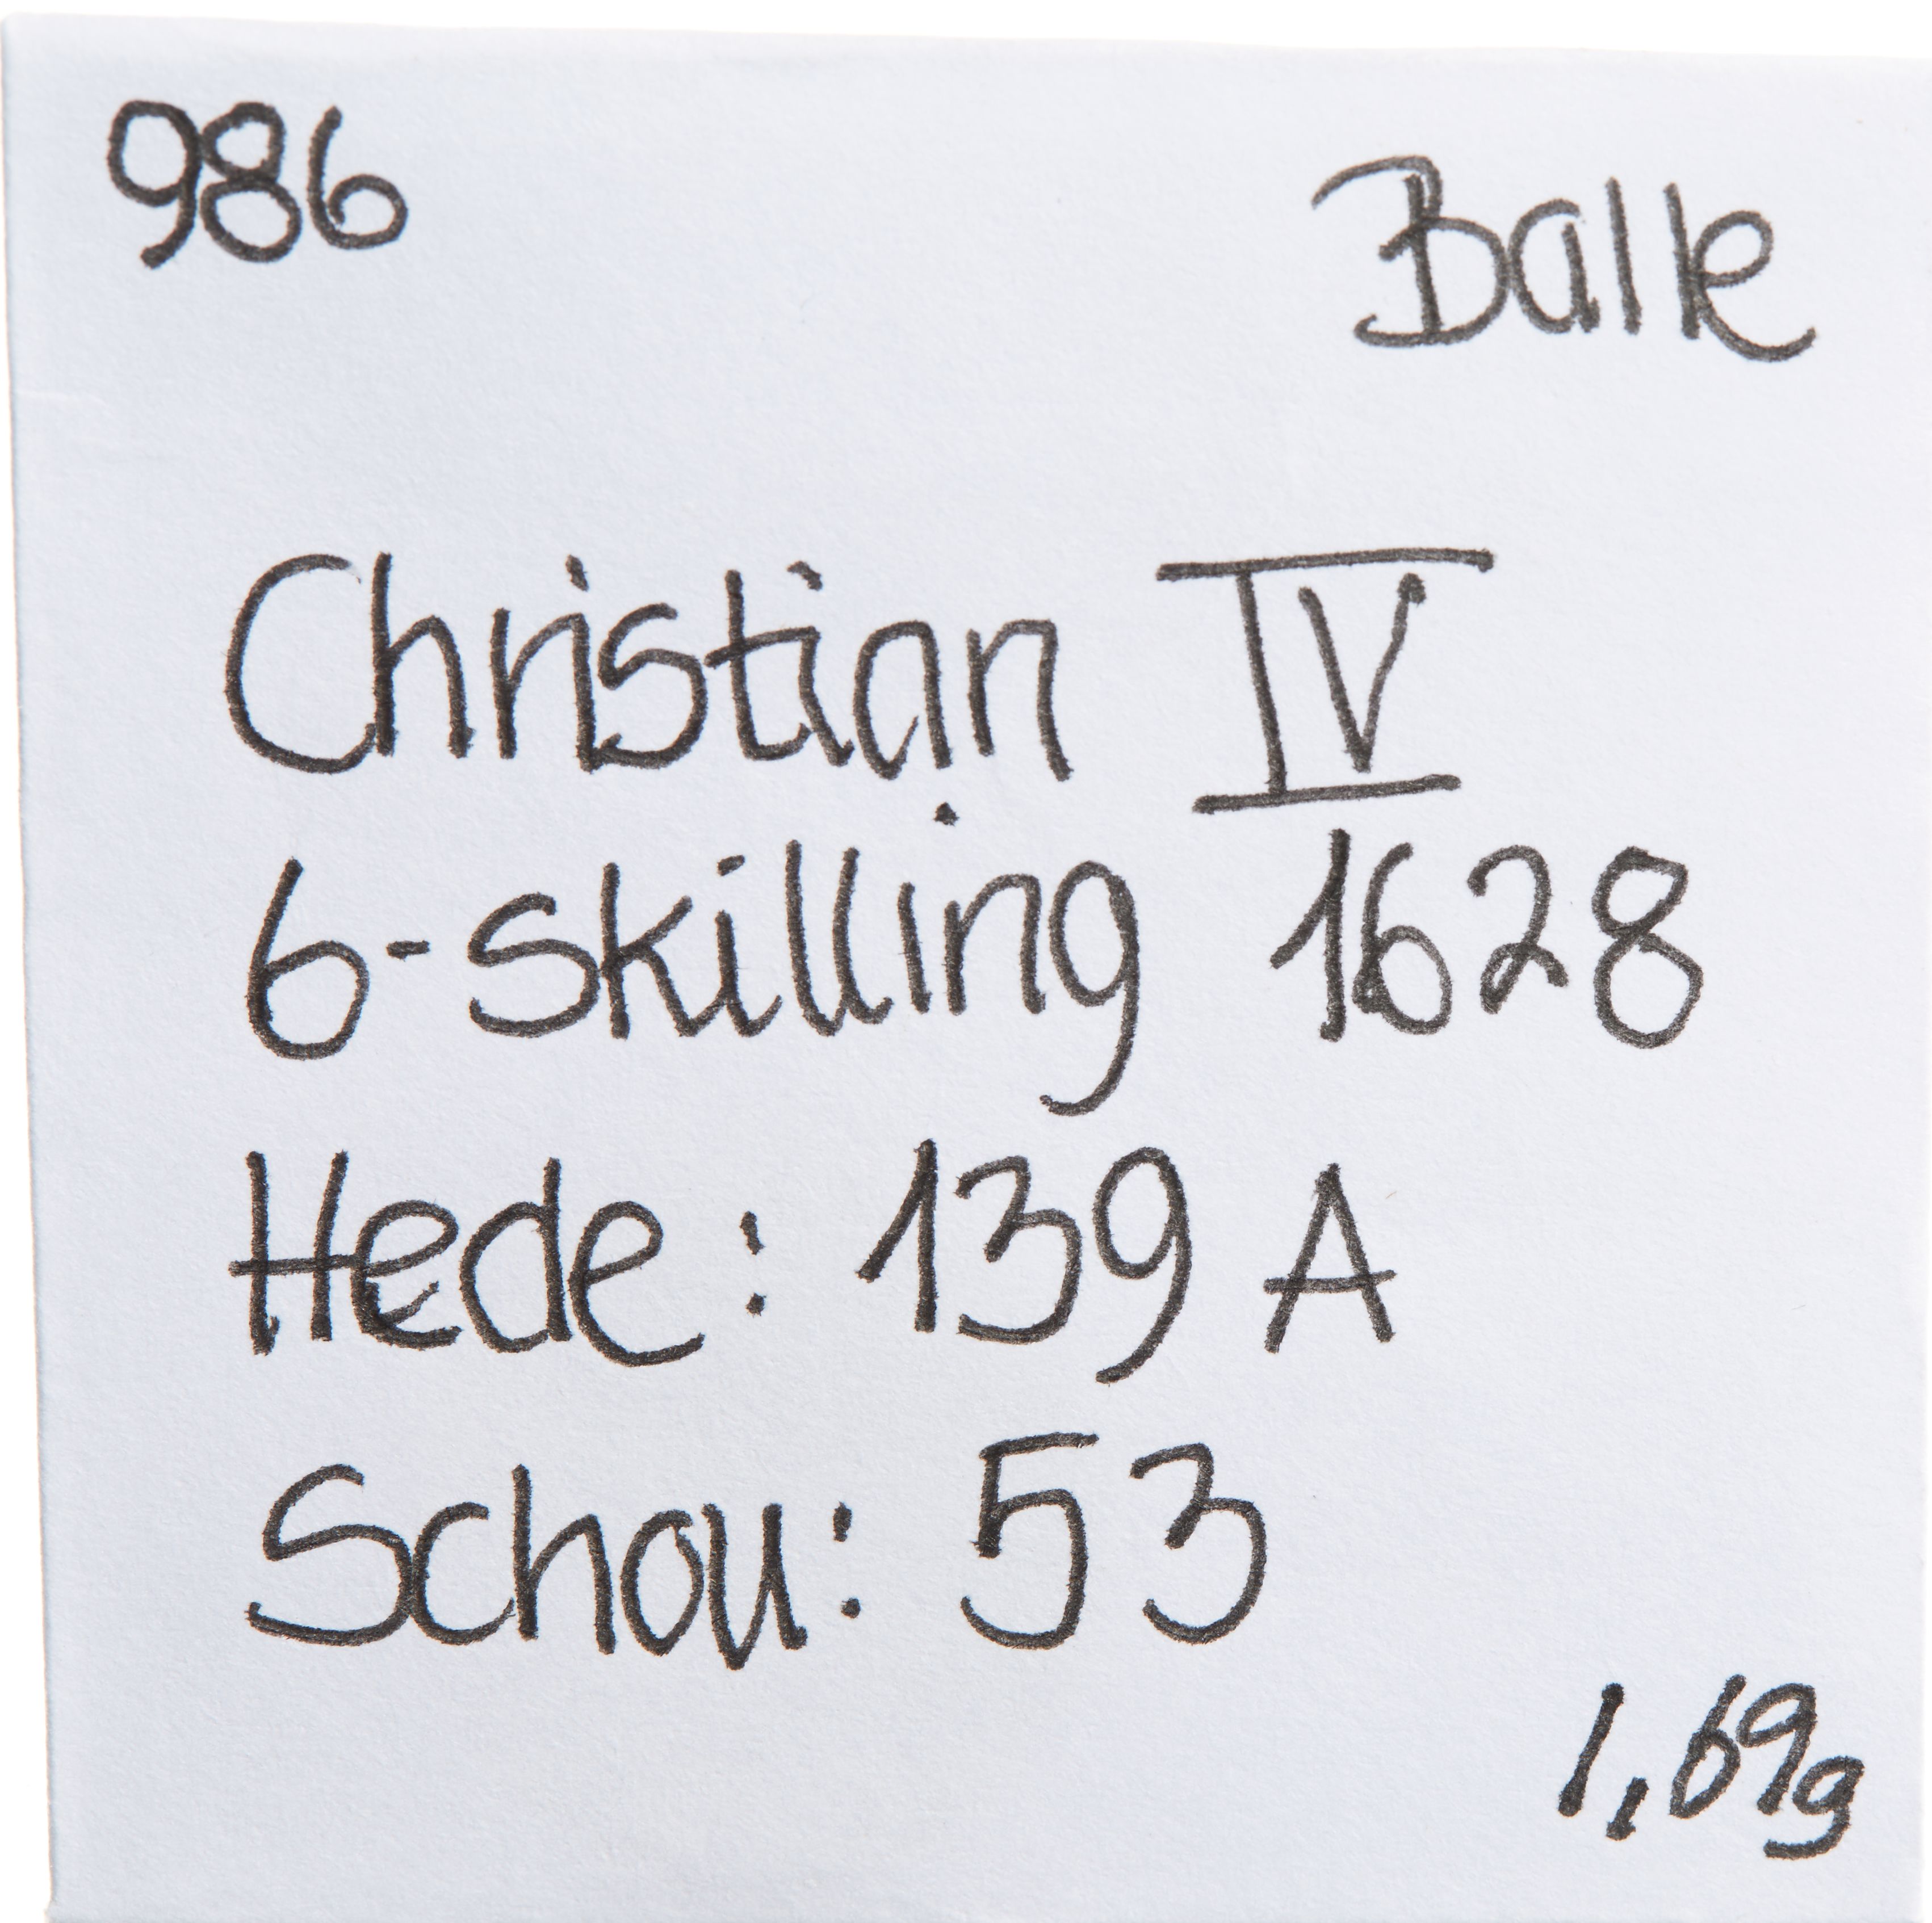 986
Balle
Christian IV
6-skilling 1628
Hede: 139 A
Schou: 53
1,69g